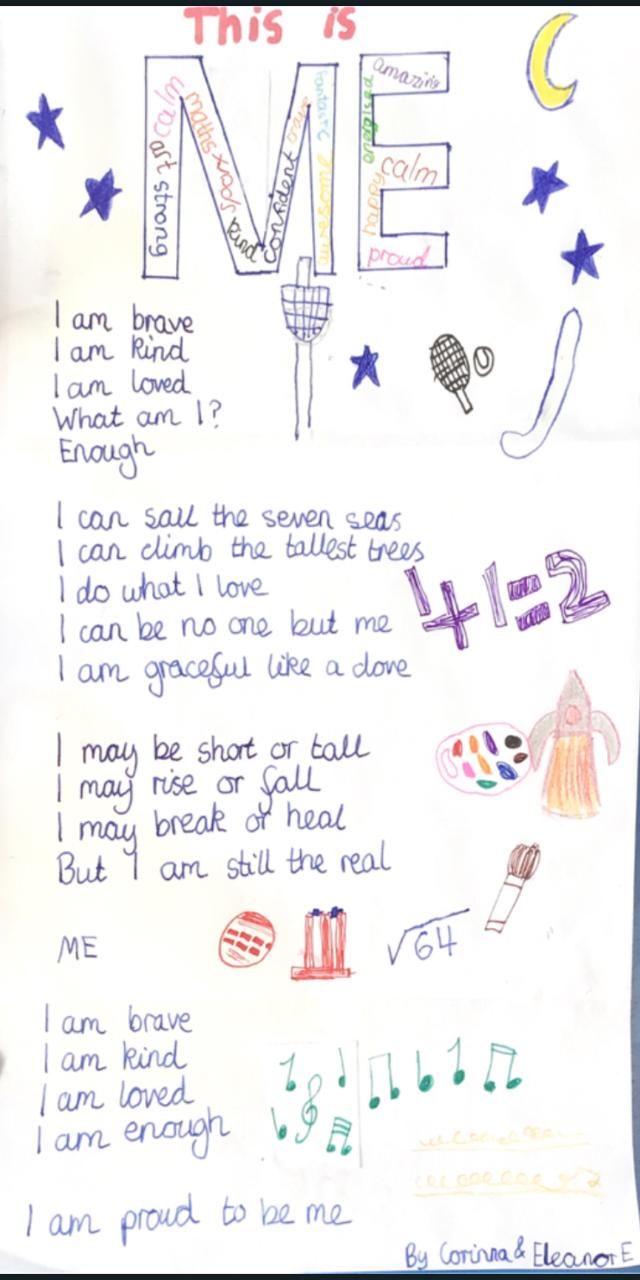 This is
ME
calm
art
strong
maths
kind
confident
brave
fantastic
awesome
amazing
energised
calm
happy
proud
I am brave
I am kind
I am loved
What am I?
Enough
I can sail the seven seas
I can climb the tallest trees
I do what I love
I can be no one but me
I am graceful like a dove
1+1=2
I may be short or tall
I may rise or fall
I may break or heal
But I am still the real
ME
√64
I am brave
I am kind
I am loved
I am enough
I am proud to be me
By Corinna & Eleanor E